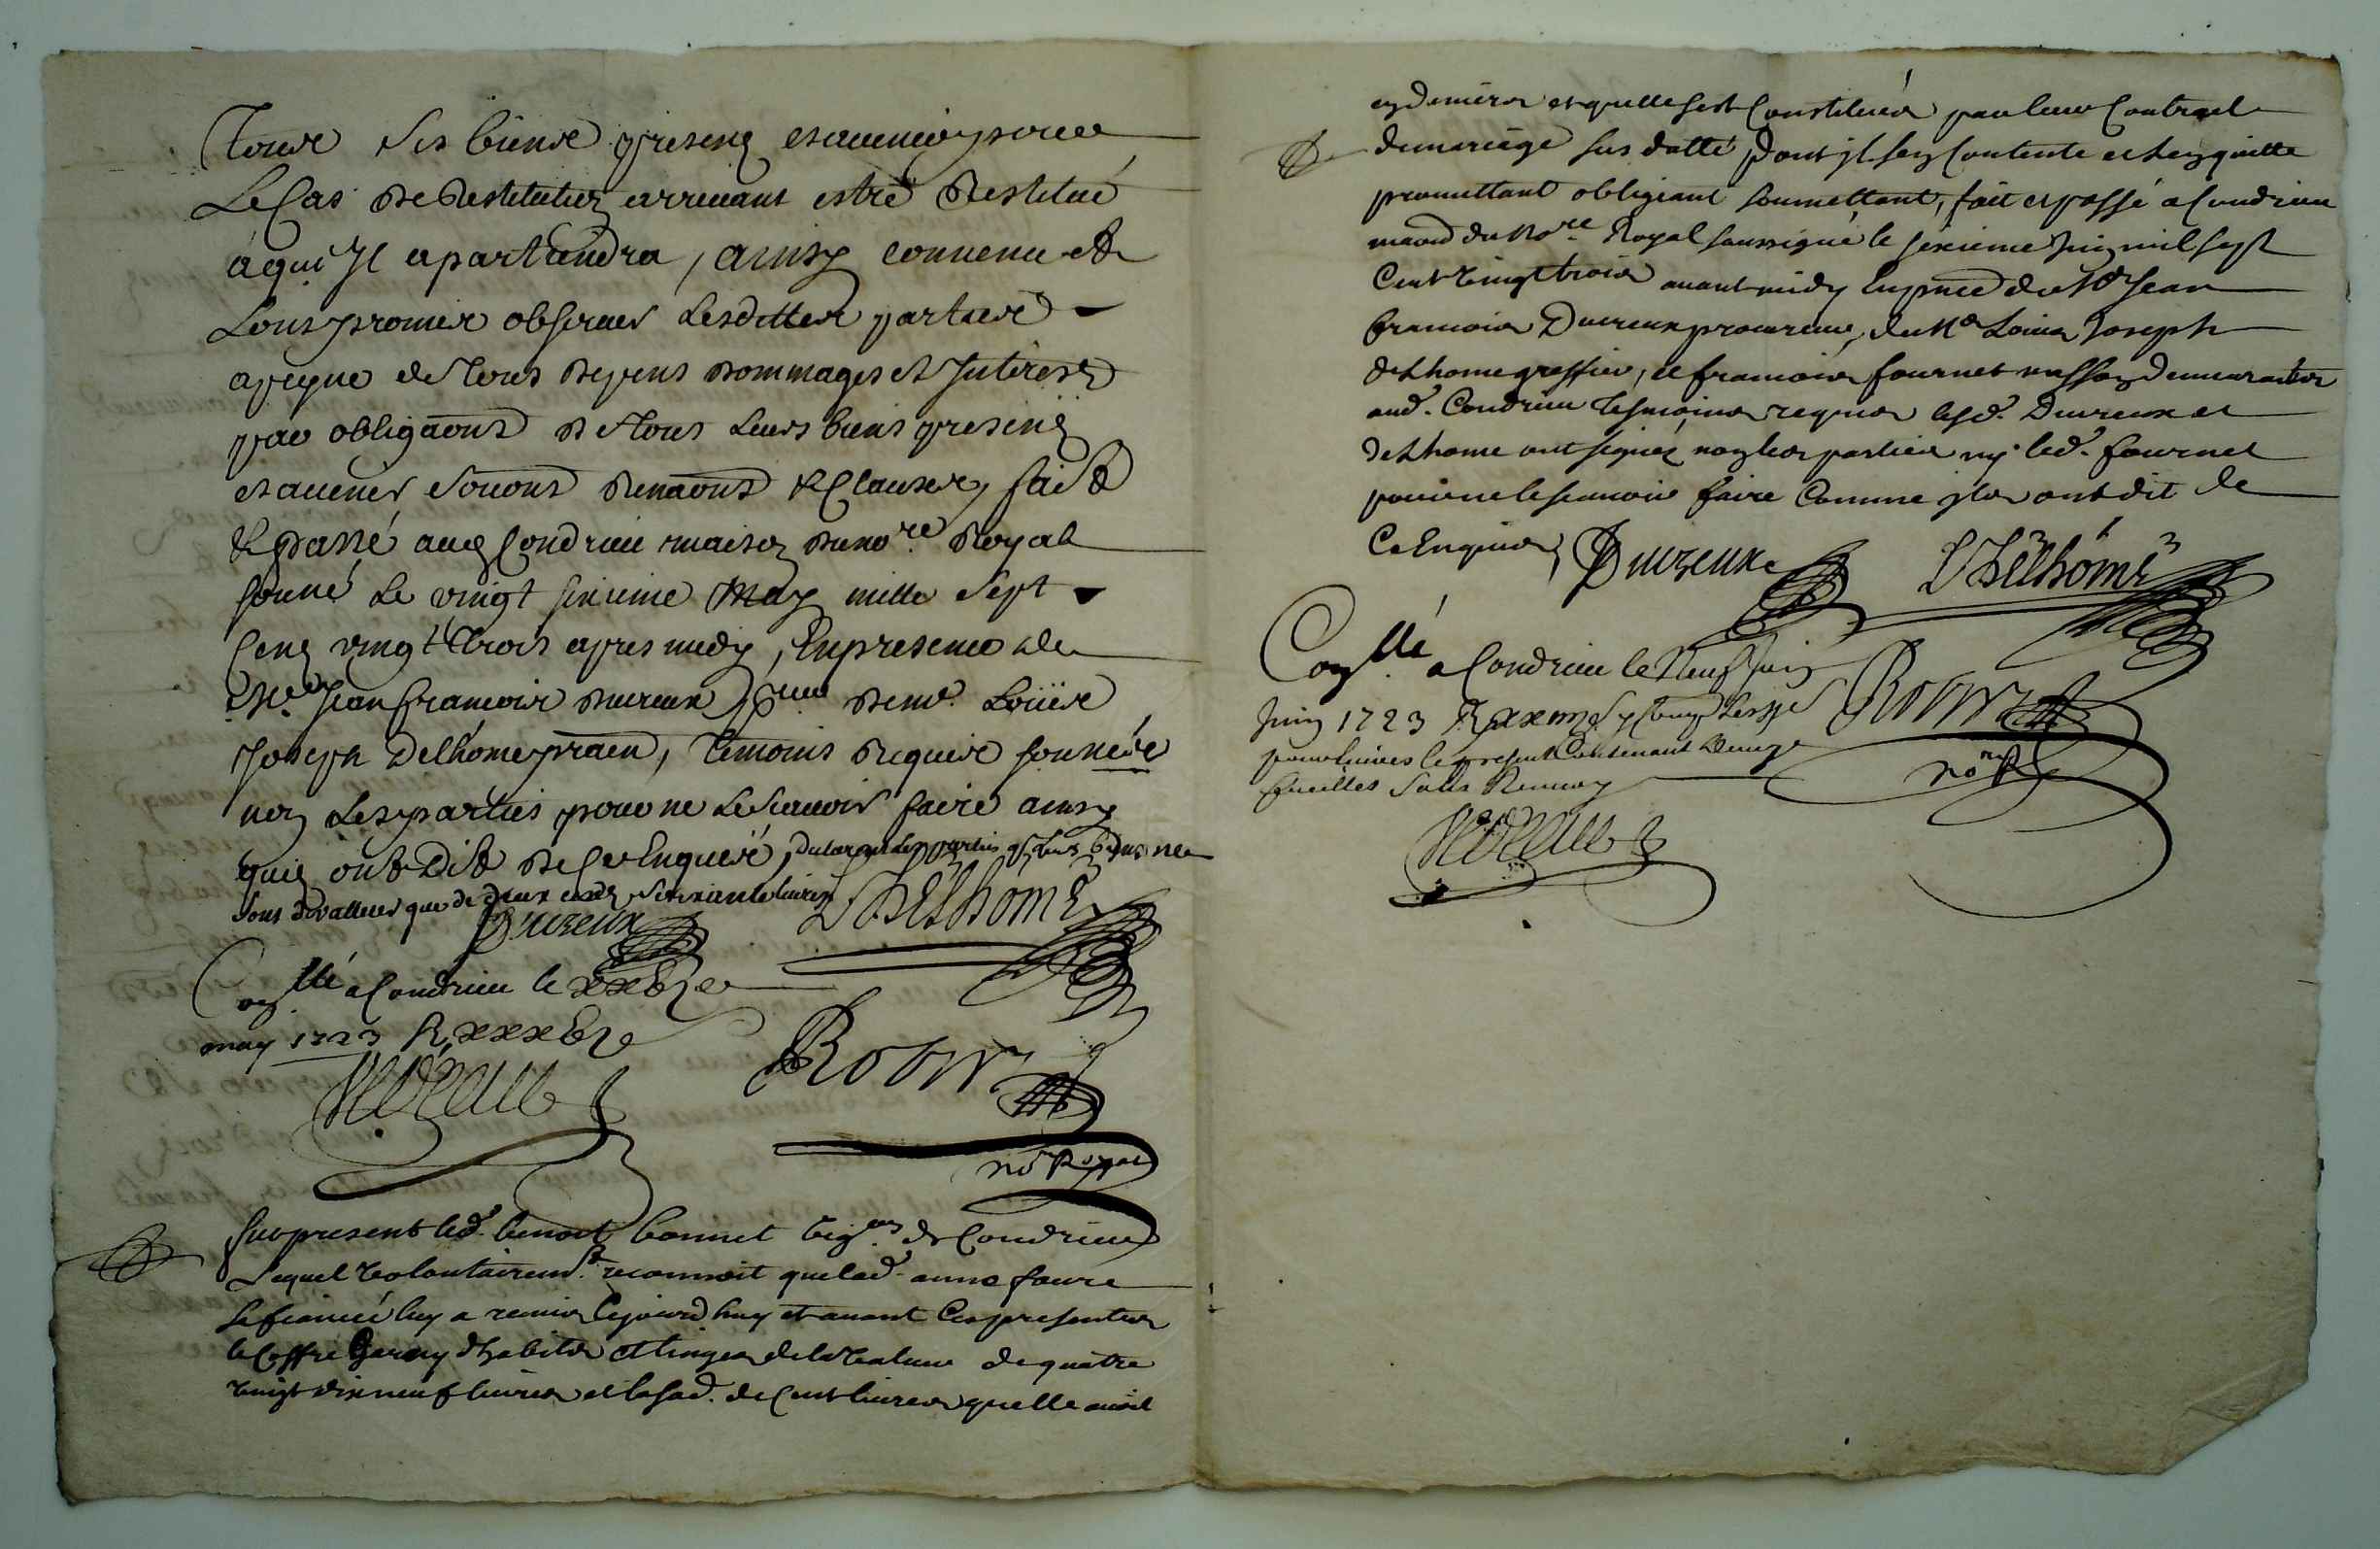 Tous ses biens presens et avenir pour
Le Cas de Restitution arrivant estre Restitué
a qui Jl apartiendra, ainsy convenu et
promis observer Lesdittes parties
a peyne de Tous depens dommages et Interests
par obligaons de Tous Leurs biens presens
et avenir renaons & Clauses, fait
& passé aud Condrieu maison du no.re Royal
Le vingt sixieme May mille Sept
Cens vingt trois apres midy, En presence de
Me Jean francois Ducreux de me Loüis
Joseph Delhome, Temoins Requis
non Les parties pour ne Le scavoir faire ainsy
ont Dit De Ce Enquis, parties biens ne
sont de valleur que de deux cens soixante livres
Ducreux Delhome
Con.llé a Condrieu le
may 1723
no.re Royal
fut present led. benoist bonnet vig.on de Condrieu
Lequel volontairem.t reconnoit que lad. anne faure
sa fiancée luy a remis cejourd huy et avant Ces presentes
le Coffre Garny d'habits et linges de la valeur de quatre
vingt dix neuf livres et la so.e de Cent livres quelle avoit
en deniers et quelle sest Constituée par leur Contract
de mariage sus datté Dont jl sen Contente et len quitte
promettant obligeant soumettant, fait et passé a Condrieu
maison du No.re Royal soussigné le sixieme Juin mil sept
Cent vingt trois avant midy En pnce de Me Jean
francois Ducreux procureur, de Me Louis Joseph
delhome greffier, et francois fournet demeurants
aud. Condrieu Tesmoins requis lesd. Ducreux et
delhome ont signéz non les parties ny led. fournet
pour ne le scavoir faire Comme jls ont dit de
Ce Enquis, Ducreux Delhome
Con.llé a Condrieu le Neuf Juin
Juin 1723
livres le present Contenant Deux
fueilles
no.re R